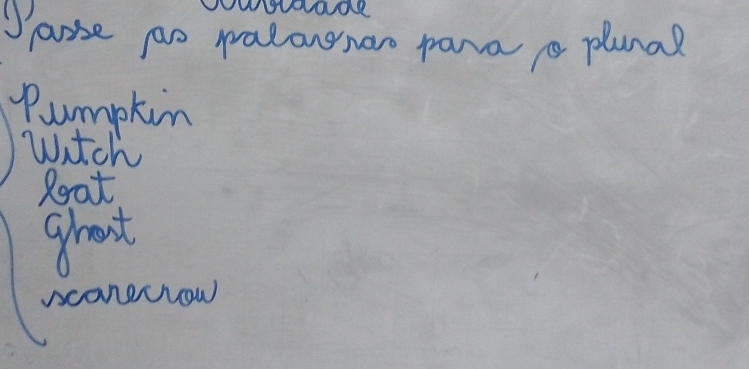 Passe as palavras para o plural
Pumpkin
Witch
bat
Ghost
scarecrow